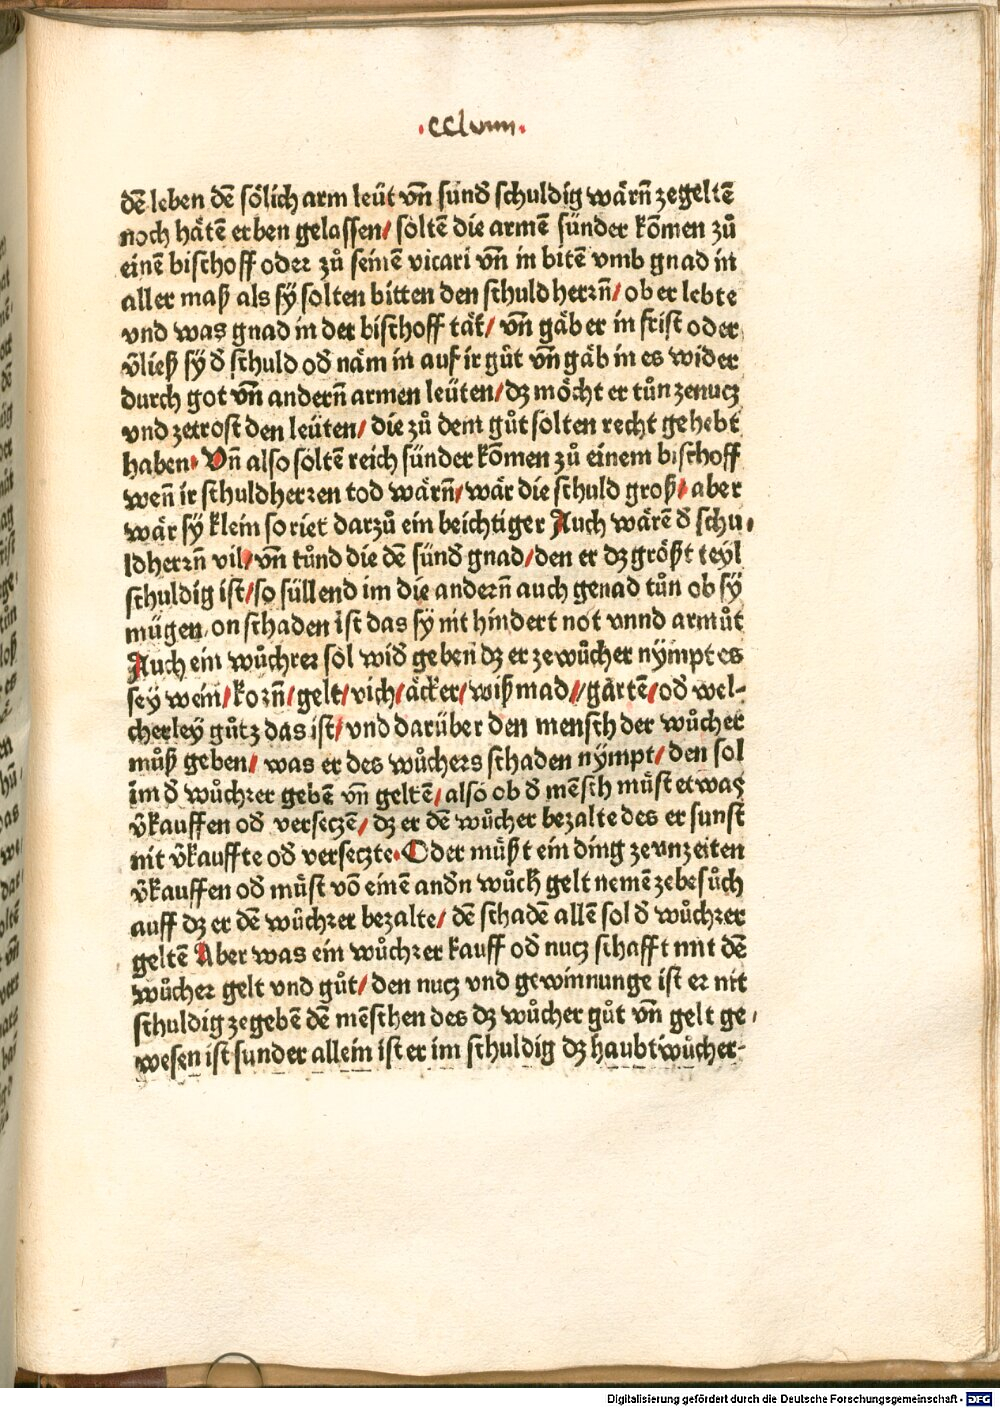 ·cclviiii·
dē leben dē sölich arm leüt vn̄ sünd̄ schuldig wärn̄ zegeltē
noch hätē erben gelassen/ soltē die armē sünder kōmen zů
einē bischoff oder zů seinē vicari vn̄ in bitē vmb gnad in
aller maß als sÿ solten bitten den schuldherrn̄/ ob er lebte
vnd was gnad in der bischoff tät/ vn̄ gäb er in frist oder
v̄ließ sÿ d̄ schuld od̄ näm in auf ir gůt vn̄ gäb in es wider
durch got vn̄ andern̄ armen leüten/ dz möcht er tůn zenucz
vnd zetrost den leüten/ die zů dem gůt solten recht gehebt
haben· Vn̄ also soltē reich sünder kōmen zů einem bischoff
wen̄ ir schuldherren tod wärn̄/ wär die schuld groß/ aber
wär sÿ klein so riet darzů ein beichtiger Auch wärē d̄ schu-
ldherrn̄ vil/ vn̄ tůnd die dē sünd̄ gnad/ den er dz größt teyl
schuldig ist/ so süllend im die andern̄ auch genad tůn ob sÿ
mügen/ on schaden ist das sÿ nit hindert not vnnd armůt
Auch ein wůchrer sol wid̄ geben dz er ze wůcher nÿmpt es
seÿ wein/ korn̄/ gelt/ vich/ äcker/ wißmad// gärtē/ od̄ wel-
cherleÿ gůtz das ist/ vnd darüber den mensch der wůcher
můß geben/ was er des wůchers schaden nÿmpt/ den sol
im d̄ wůchrer gebē vn̄ geltē/ also ob d̄ mēsch můst etwas
v̄kauffen od̄ verseczē/ dz er dē wůcher bezalte des er sunst
nit v̄kauffte od̄ verseczte· Oder můßt ein ding ze vnzeiten
v̄kauffen od̄ můst vō einē andn wůch gelt nemē zebesůch
auff dz er dē wůchrer bezalte/ dē schadē allē sol d̄ wůchrer
geltē Aber was ein wůchrer kauff od̄ nucz schafft mit dē
wůcher gelt vnd gůt/ den nucz vnd gewinnunge ist er nit
schuldig zegebē dē mēschen des dz wůcher gůt vn̄ gelt ge-
wesen ist sunder allein ist er im schuldig dz haubtwůcher-
Digitalisierung gefördert durch die Deutsche Forschungsgemeinschaft - DFG